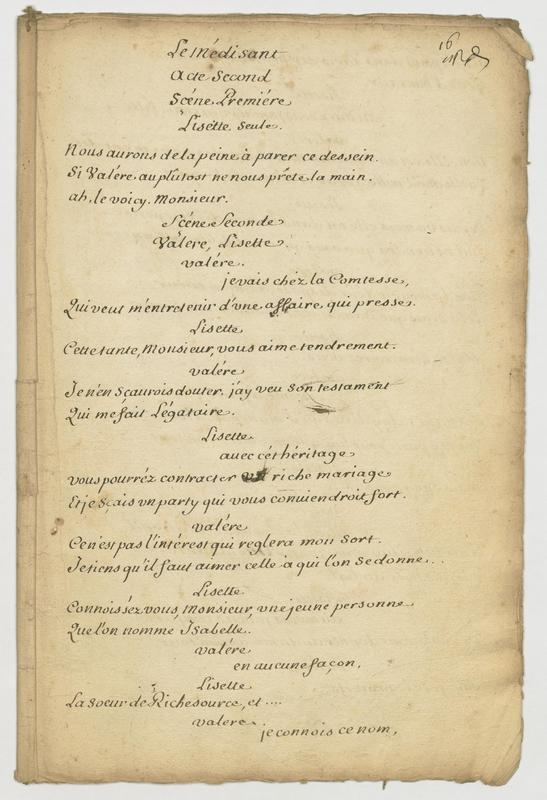 16
Le Médisant
Acte Second
Scéne Premiére
Lisette seule.
Nous aurons de la peine à parer ce dessein.
Si Valére au plutost ne nous préte la main.
ah, le voicy. Monsieur.
Scéne Seconde
Valere, Lisette.
valére.
je vais chéz la Comtesse,
Qui veut m'entretenir d'vne affaire qui presse.
Lisette
Cette tante, Monsieur, vous aime tendrement.
valére
Je n'en sçaurois douter. j'ay veu son testament
Qui me fait Légataire.
Lisette
auec cét héritage
vous pourréz contracter riche mariage
Et je sçais vn party qui vous conuiendroit fort.
valére
Ce n'est pas l'intérest qui reglera mon sort.
Je tiens qu'il faut aimer celle à qui l'on se donne..
Lisette
Connoisséz vous, Monsieur, vne jeune personne
Que l'on nomme Isabelle.
valére
en aucune façon.
Lisette
La soeur de Richesource, et ....
valere.
je connois ce nom,